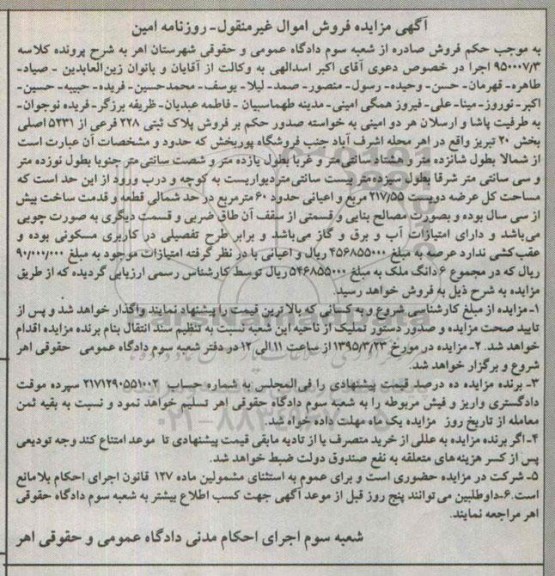 آگهی مزایده فروش اموال غیرمنقول- روزنامه امین
به موجب حکم فروش صادره از شعبه سوم دادگاه عمومی و حقوقی شهرستان اهر به شرح پرونده کلاسه
۹۵۰۰۰۷/۳ اجرا در خصوص دعوی آقای اکبر اسدالهی به وکالت از آقایان و بانوان زین‌العابدین - صیاد-
طاهره- قهرمان- حسن- وحیده- رسول- منصور- صمد- لیلا- یوسف- محمدحسین- فریده- حبیبه- حسین-
اکبر- نوروز- مینا- علی- فیروز همگی امینی- مدینه طهماسبیان- فاطمه عبدیان- ظریفه برزگر- فریده نوجوان-
به طرفیت پاشا و ارسلان هر دو امینی به خواسته صدور حکم بر فروش پلاک ثبتی ۲۲۸ فرعی از ۵۲۳۱ اصلی
بخش ۲۰ تبریز واقع در اهر محله اشرف آباد جنب فروشگاه پوربخش که حدود و مشخصات آن عبارت است
از شمالا بطول شانزده متر و هشتاد سانتی متر و غربا بطول یازده متر و شصت سانتی متر جنوبا بطول نوزده متر
و سی سانتی متر شرقا بطول سیزده متر بیست سانتی متر دیواریست به کوچه و درب ورود از این حد است که
مساحت کل عرضه دویست ۲۱۷/۵۵ مربع و اعیانی حدود ۶۰ مترمربع در حد شمالی قطعه و قدمت ساخت بیش
از سی سال بوده و بصورت مصالح بنایی و قسمتی از سقف آن طاق ضربی و قسمت دیگری به صورت چوبی
می‌باشد و دارای امتیازات آب و برق و گاز می‌باشد و برابر طرح تفصیلی در کاربری مسکونی بوده و
عقب‌کشی ندارد عرصه به مبلغ ۴۵۶۸۵۵۰۰۰ ریال و اعیانی با در نظر گرفته امتیازات موجود به مبلغ ۹۰/۰۰۰/۰۰۰
ریال که در مجموع ۶ دانگ ملک به مبلغ ۵۴۶۸۵۵۰۰۰ ریال توسط کارشناس رسمی ارزیابی گردیده که از طریق
مزایده به شرح ذیل به فروش خواهد رسید.
۱- مزایده از مبلغ کارشناسی شروع و به کسانی که بالاترین قیمت را پیشنهاد نمایند واگذار خواهد شد و پس از
تایید صحت مزایده و صدور دستور تملیک از ناحیه این شعبه نسبت به تنظیم سند انتقال بنام برنده مزایده اقدام
خواهد شد. ۲- مزایده در مورخ ۱۳۹۵/۳/۲۳ از ساعت ۱۱ الی ۱۲ در دفتر شعبه سوم دادگاه عمومی حقوقی اهر
شروع و برگزار خواهد شد.
۳- برنده مزایده ده درصد قیمت پیشنهادی را فی‌المجلس به شماره حساب ۲۱۷۱۲۹۰۵۵۱۰۰۲ سپرده موقت
دادگستری واریز و فیش مربوطه را به شعبه سوم دادگاه حقوقی اهر تسلیم خواهد نمود و نسبت به بقیه ثمن
معامله از تاریخ روز مزایده یک ماه مهلت داده خواهد شد.
۴- اگر برنده مزایده به عللی از خرید متصرف یا از تادیه مابقی قیمت پیشنهادی تا موعد امتناع کند وجه تودیعی
پس از کسر هزینه‌های متعلقه به نفع صندوق دولت ضبط خواهد شد.
۵- شرکت در مزایده حضوری است و برای عموم به استثنای مشمولین ماده ۱۲۷ قانون اجرای احکام بلامانع
است. ۶- داوطلبین می توانند پنج روز قبل از موعد آگهی جهت کسب اطلاع بیشتر به شعبه سوم دادگاه حقوقی
اهر مراجعه نمایند.
شعبه سوم اجرای احکام مدنی دادگاه عمومی و حقوقی اهر